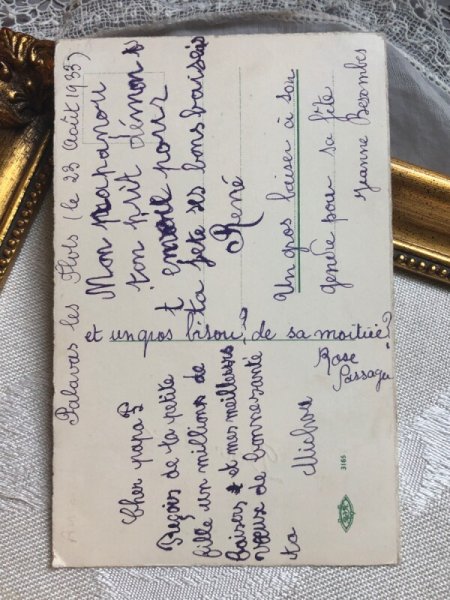 Palavas les Flots (le 23 Août 1933)
Cher papa
Reçois de ta petite
fille un millions de
baisers et mes meilleures
vœux de bonne santé
ta Michou
Mon papanou
ton p'tit démon
t Envoie pour
ta fête ses bons baisers
René
et un gros bisou, de sa moitiée?
Rose
Passager
Un gros baiser à son
gendre pour sa fête
Jeanne Bezombes
3165